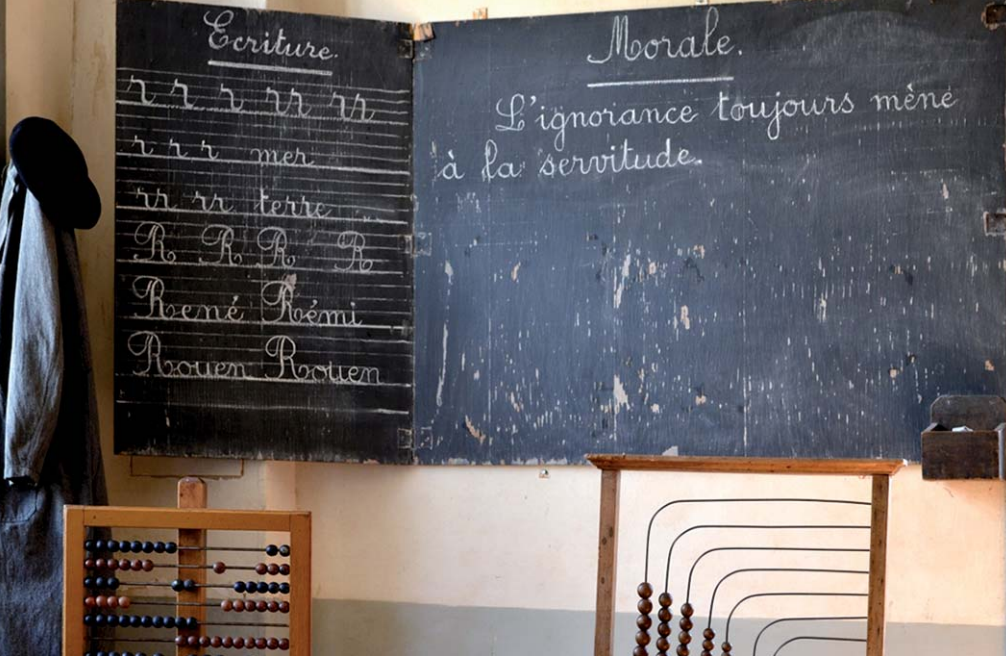 Ecriture.
r r r rr rr
r r r mer
rr rr terre
R R R R
René Rémi
Rouen Rouen
Morale.
L'ignorance toujours mène
à la servitude.